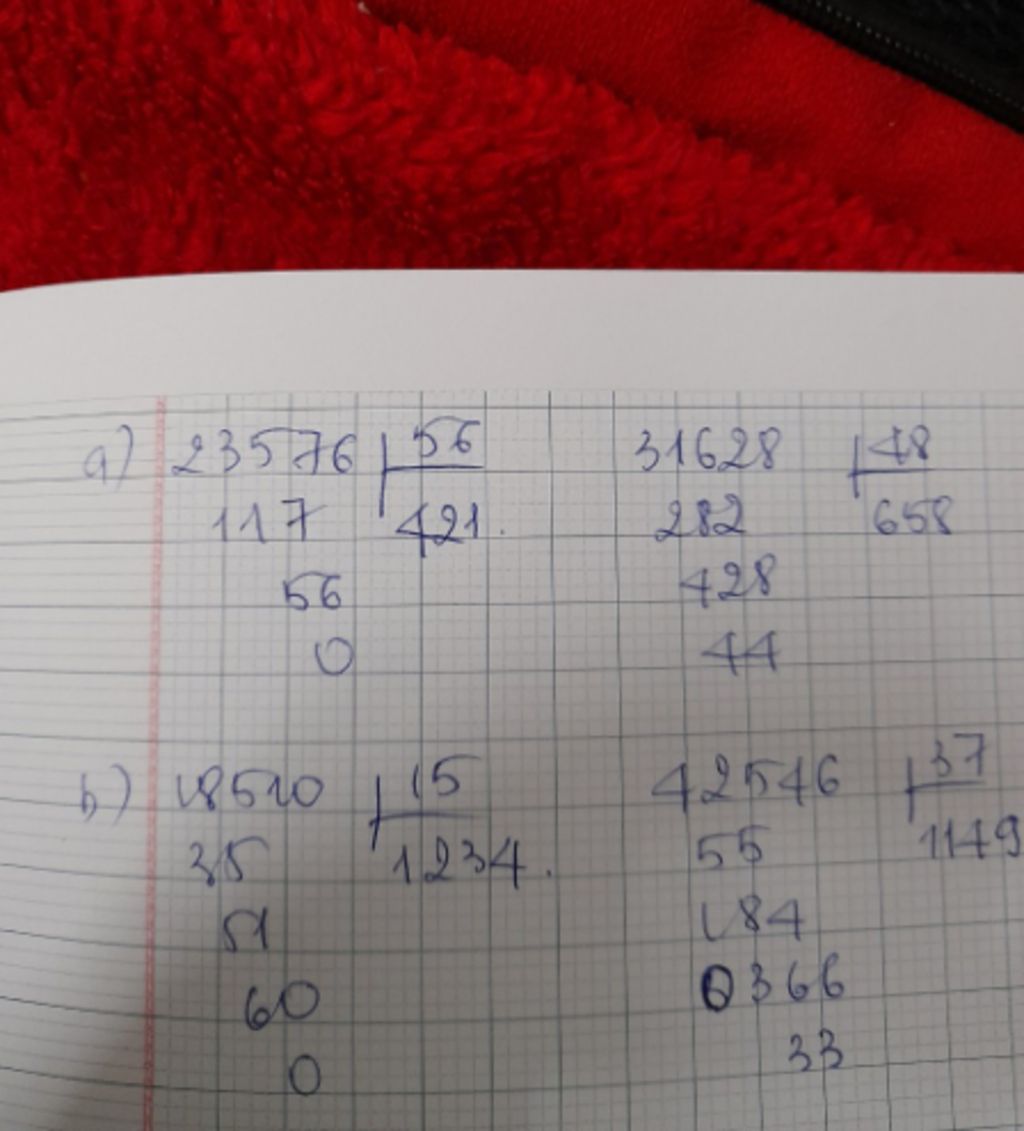 a) 23576 56 31628 48
117 421. 282 658
56 428
0 44
b) 18510 15 42546 37
35 1234. 55 1149
51 184
60 0366
0 33